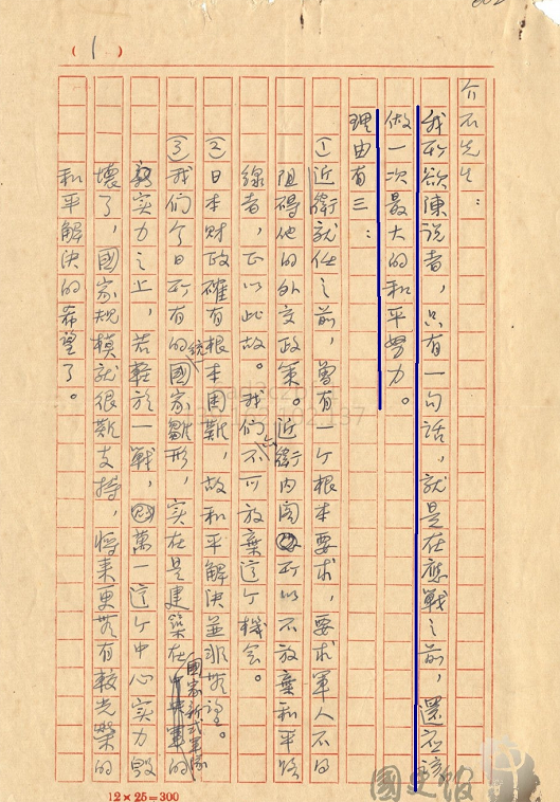 (1)
介石先生：
我所欲陳說者，只有一句話，就是在應戰之前，還应該
做一次最大的和平努力。
理由有三：
①近衛就任之前，曾有一个根本要求，要求軍人不得
阻碍他的外交政策。近衛内閣所以不放棄和平路
線者，正以此故。我們亦不可放棄這个機会。
②日本財政確有根本困難，故和平解決並非無望。
③我们今日所有的統一國家雛形，实在是建築在國家新式軍隊的
实力之上，若輕於一戰，萬一這个中心实力毀
壞了，國家規模就很難支持，將来更無有較光榮的
和平解決的希望了。
12×25=300
國史館